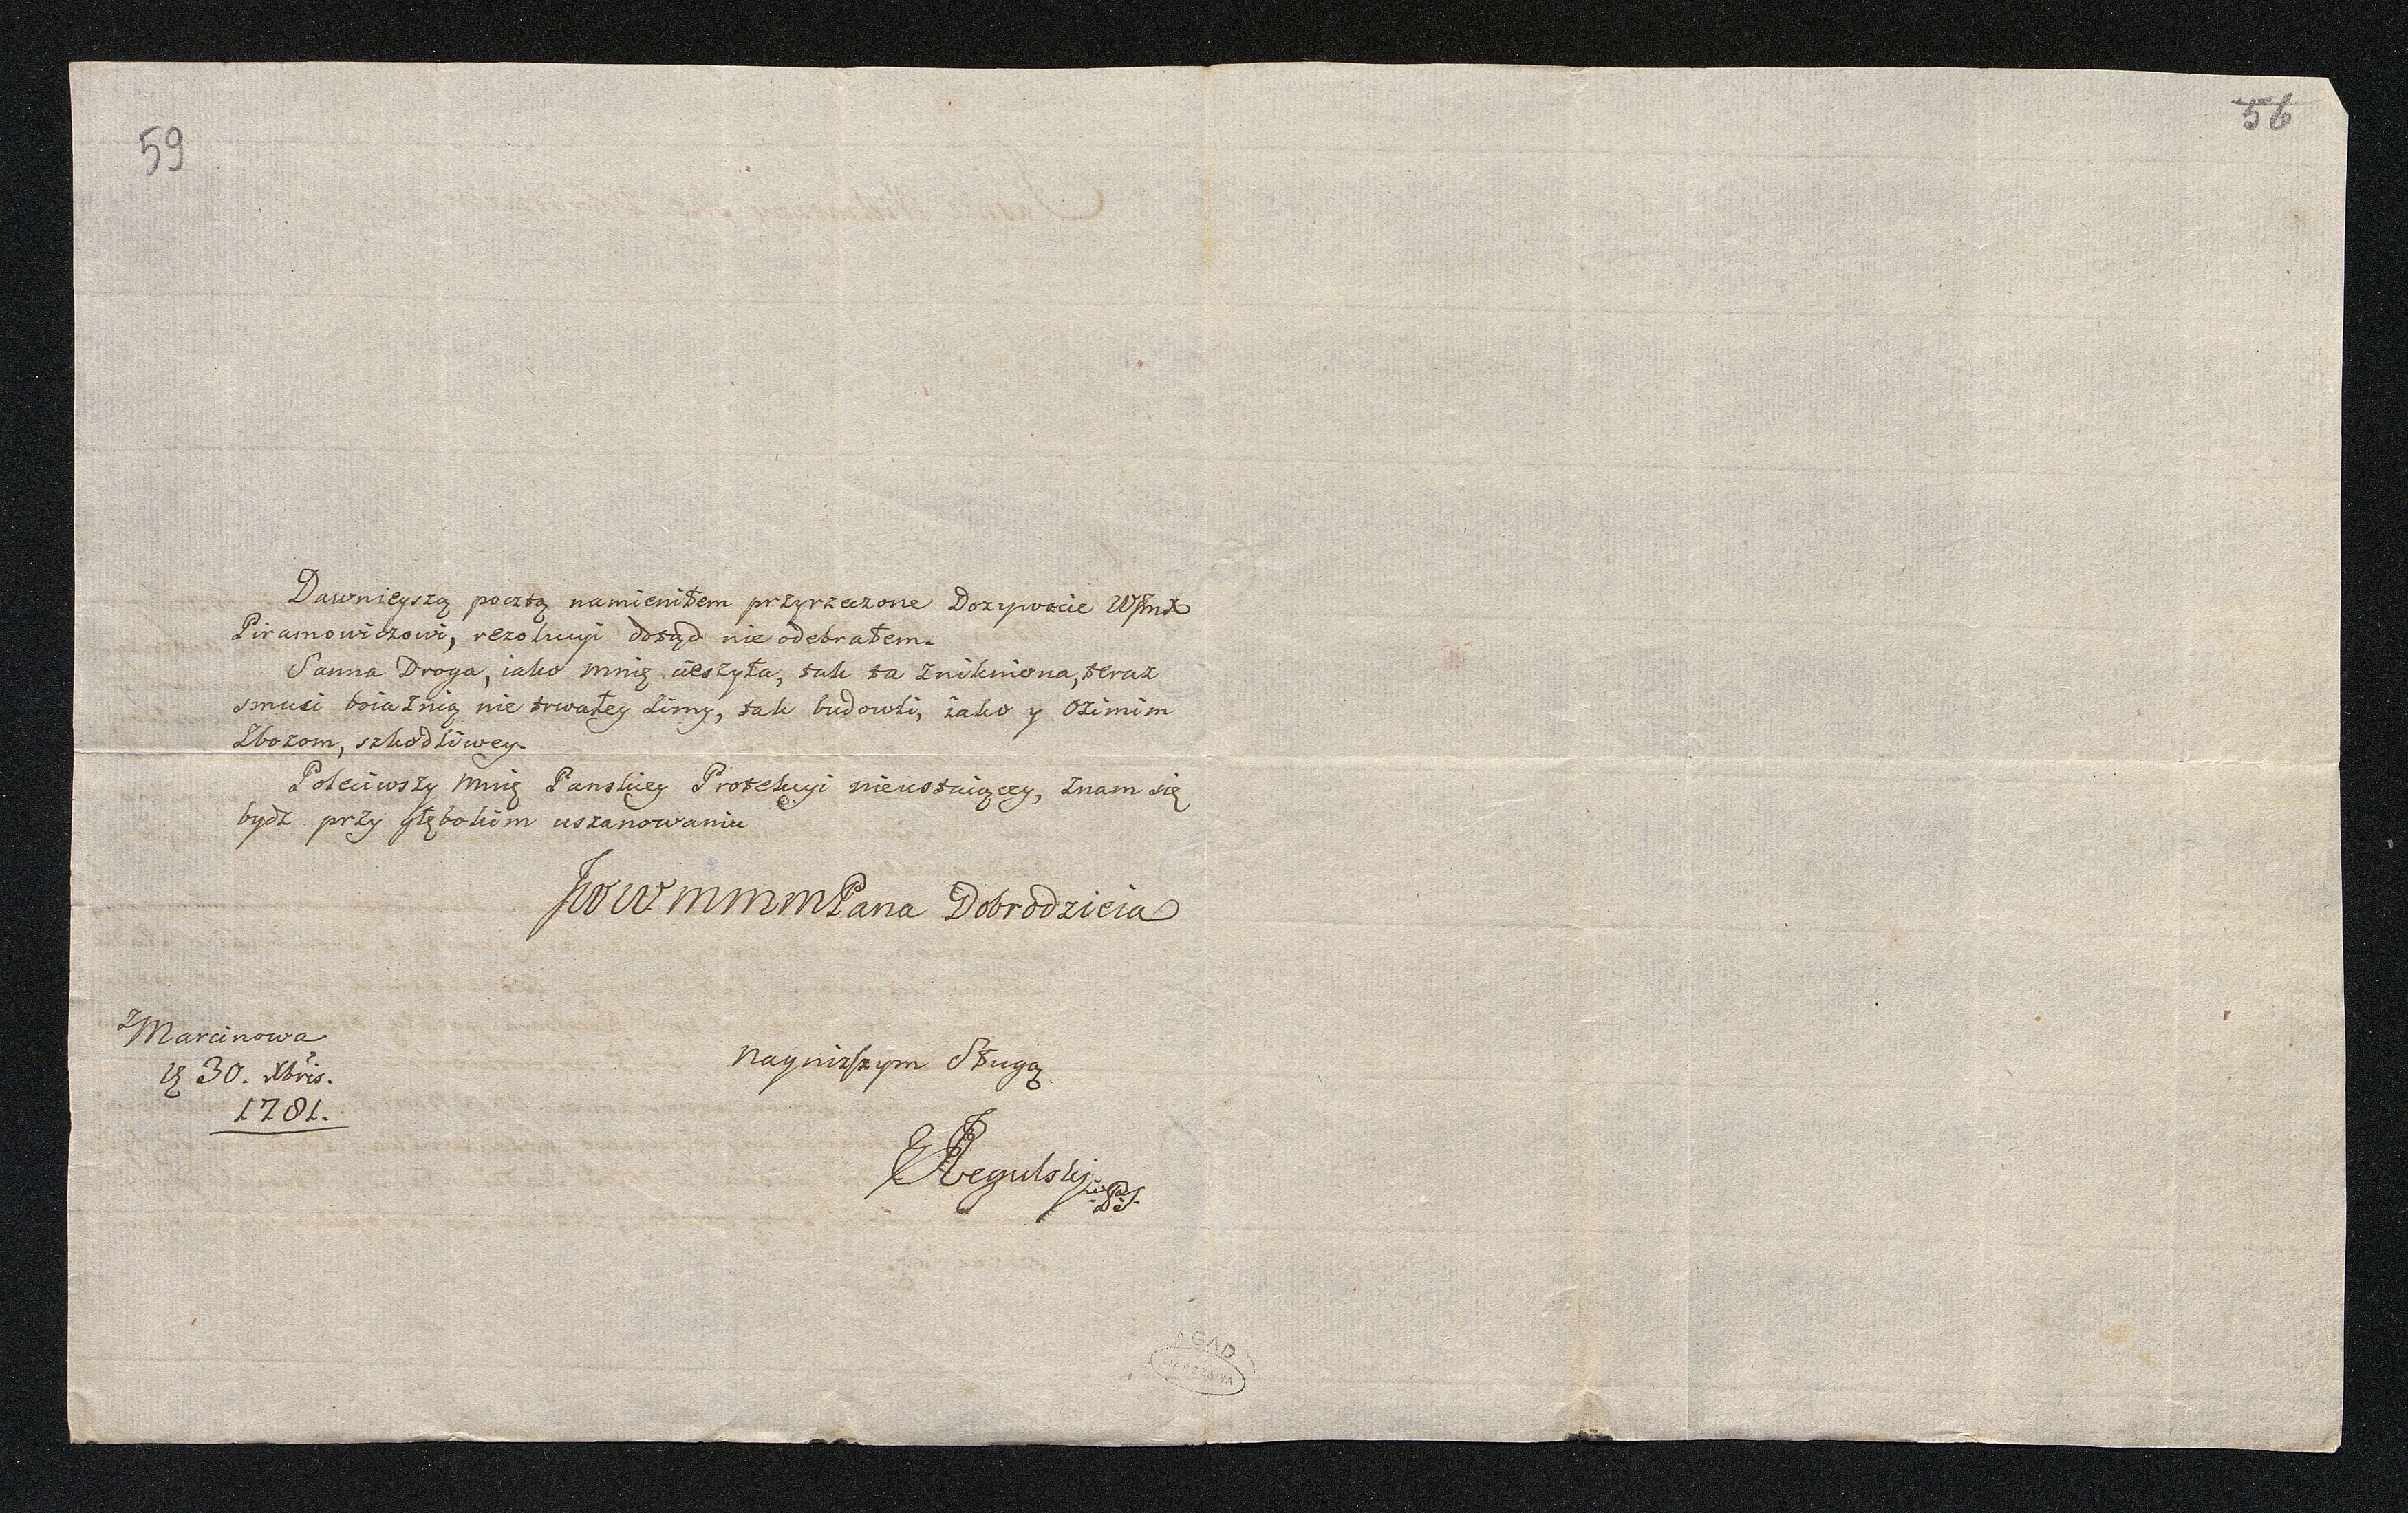 59
56
Dawnieyszą pocztą namieniłem przyrzeczone Dozywocie
Piramowiczowi, rezolucyi dotąd nie odebrałem.
Sanna Droga, iako mnię cieszyła, tak ta znikniona, teraz
smuci boiaznią nie trwałey zimy, tak budowli, iako y Ozimim
Zbozom, szkodliwey.
Poleciwszy mnię Panskiey Protekcyi nieustaiącey, znam się
bydz przy głębokim uszanowaniu
JWWmmmPana Dobrodzieia
z Marcinowa
30. Xbris.
1781.
Naynizszym Sługą
Regulski
AGAD
WARSZAWA